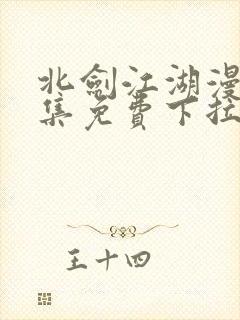 北劍江湖漫
集免費下拉
王十四